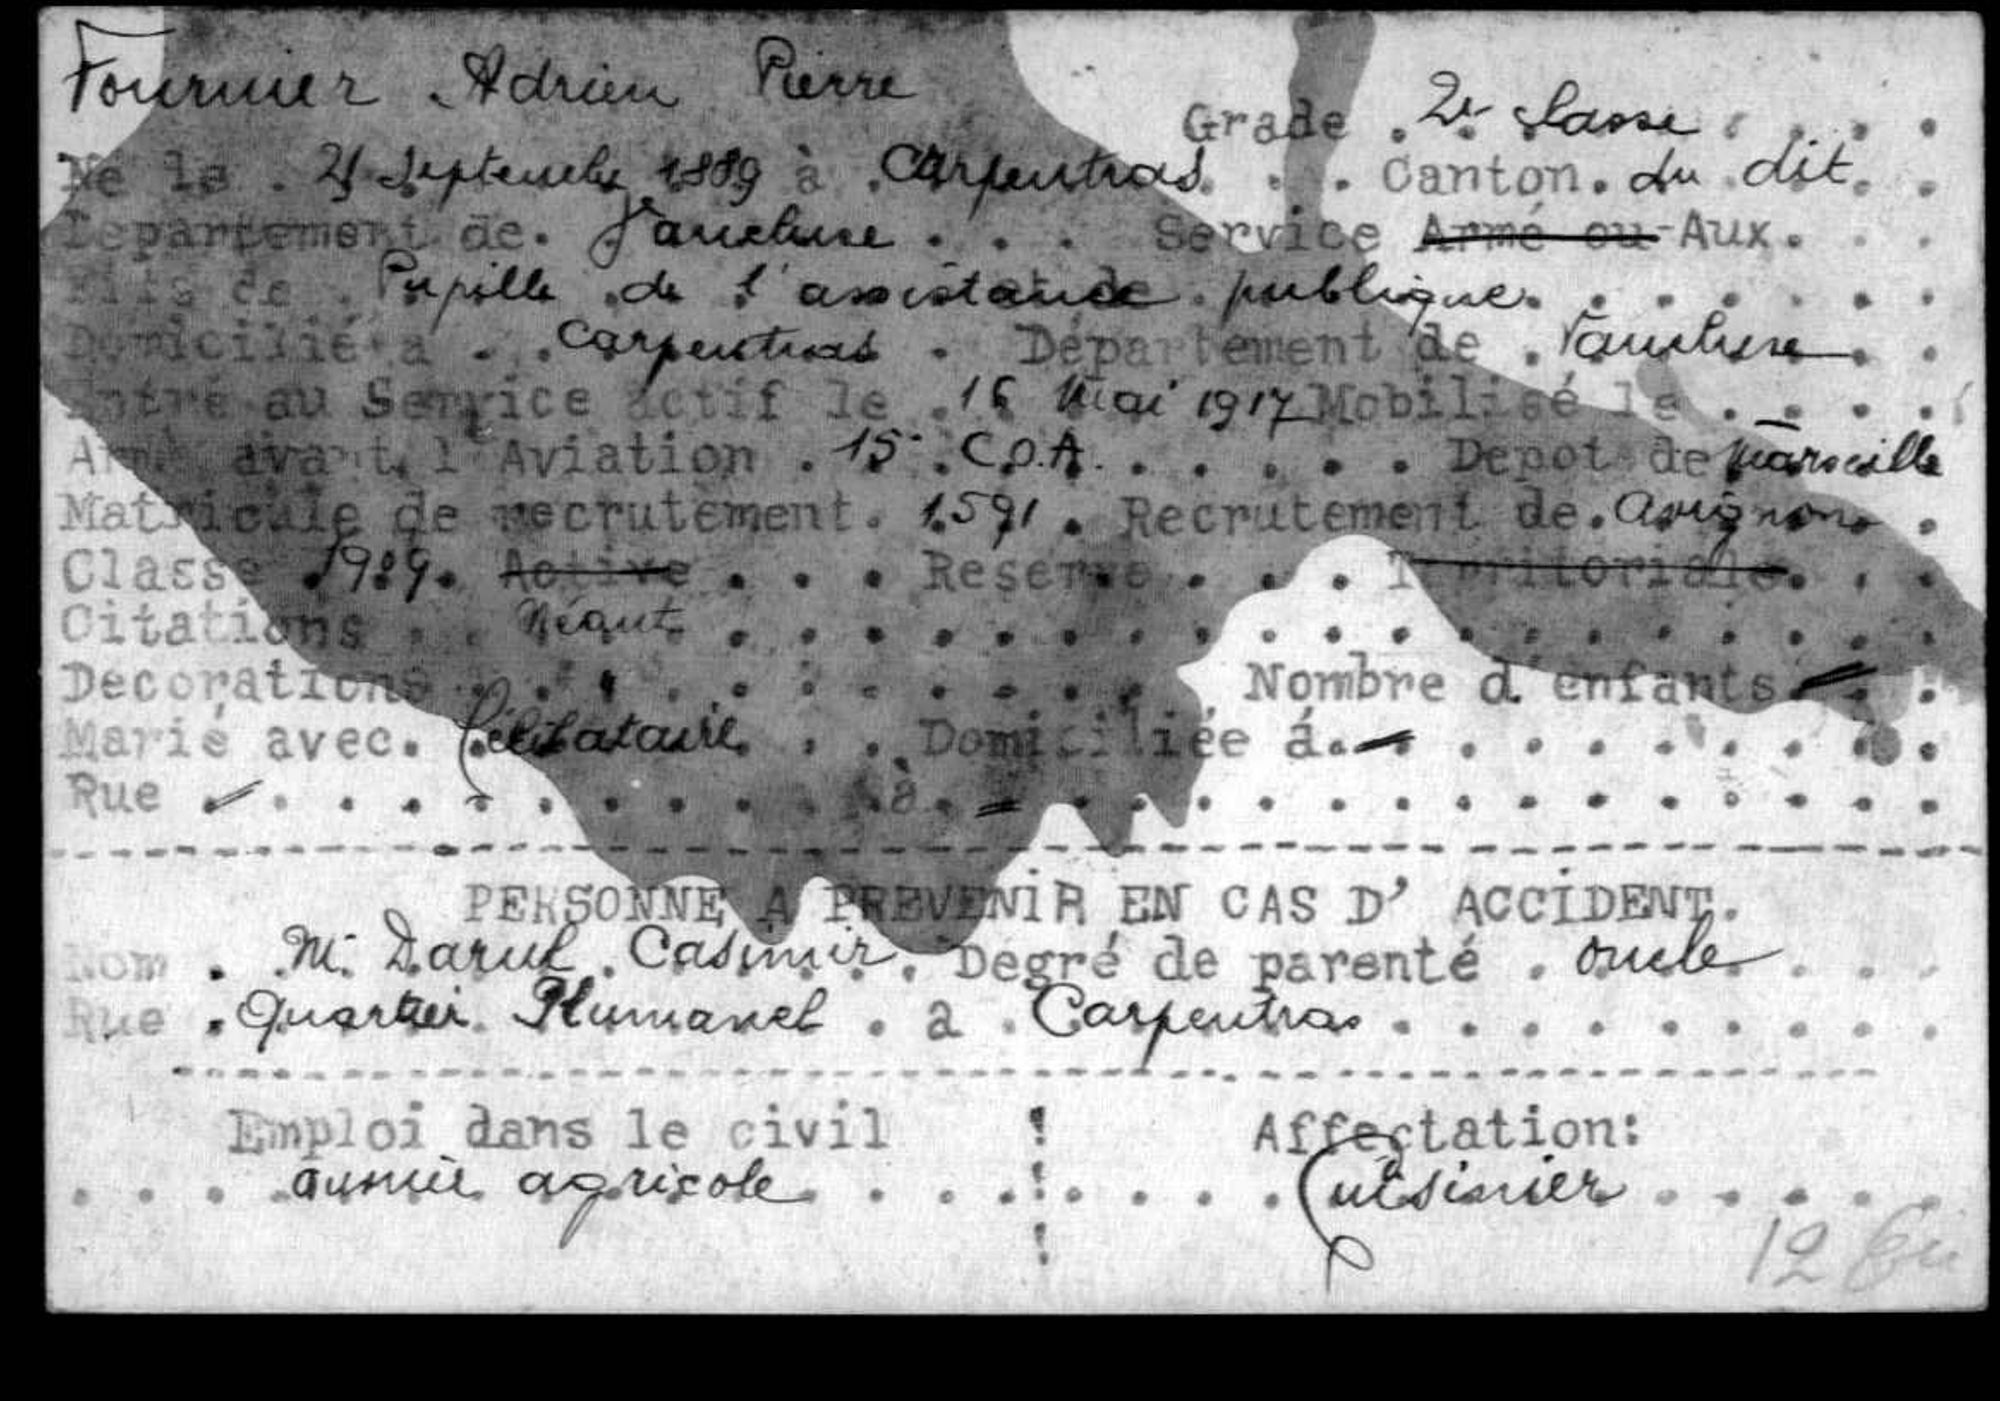 Fournier Adrien Pierre
Grade . 2e classe . . . .
Né le . 21 Septembre 1889 à . Carpentras . . . Canton. du dit. .
Département de. Vaucluse . . . Service ~~Armé ou~~ Aux. . .
Fils de . Pupille de l'assistance publique . . . . . .
Domicilié à . . Carpentras . Département de . Vaucluse . .
Entré au Service actif le .16 Mai 1917 Mobilisé le . . . .
Arme avant l'Aviation . 15e C.O.A. . . . . . Depot de Marseille
Matricule de recrutement. 1591 . Recrutement de. Avignon .
Classe 1909. ~~Active~~ . . . Reserve . . . ~~Territoriale~~. . .
Citations . . Néant . . . . . . . . . . . . . . . . . .
Decorations . . . . . . . . . . . Nombre d'enfants - . .
Marié avec. Célibataire . . . Domiciliée á. - . . . . . . . .
Rue - . . . . . . . . . à. = . . . . . . . . . . . . .
PERSONNE A PREVENIR EN CAS D' ACCIDENT.
Nom . M. Casimir . Dégré de parenté . oncle . . .
Rue . Quartier . a . Carpentras . . . . . . . . .
Emploi dans le civil ! Affectation:
. . . ouvrier agricole . . . . . . . Cuisinier . . . . .
12